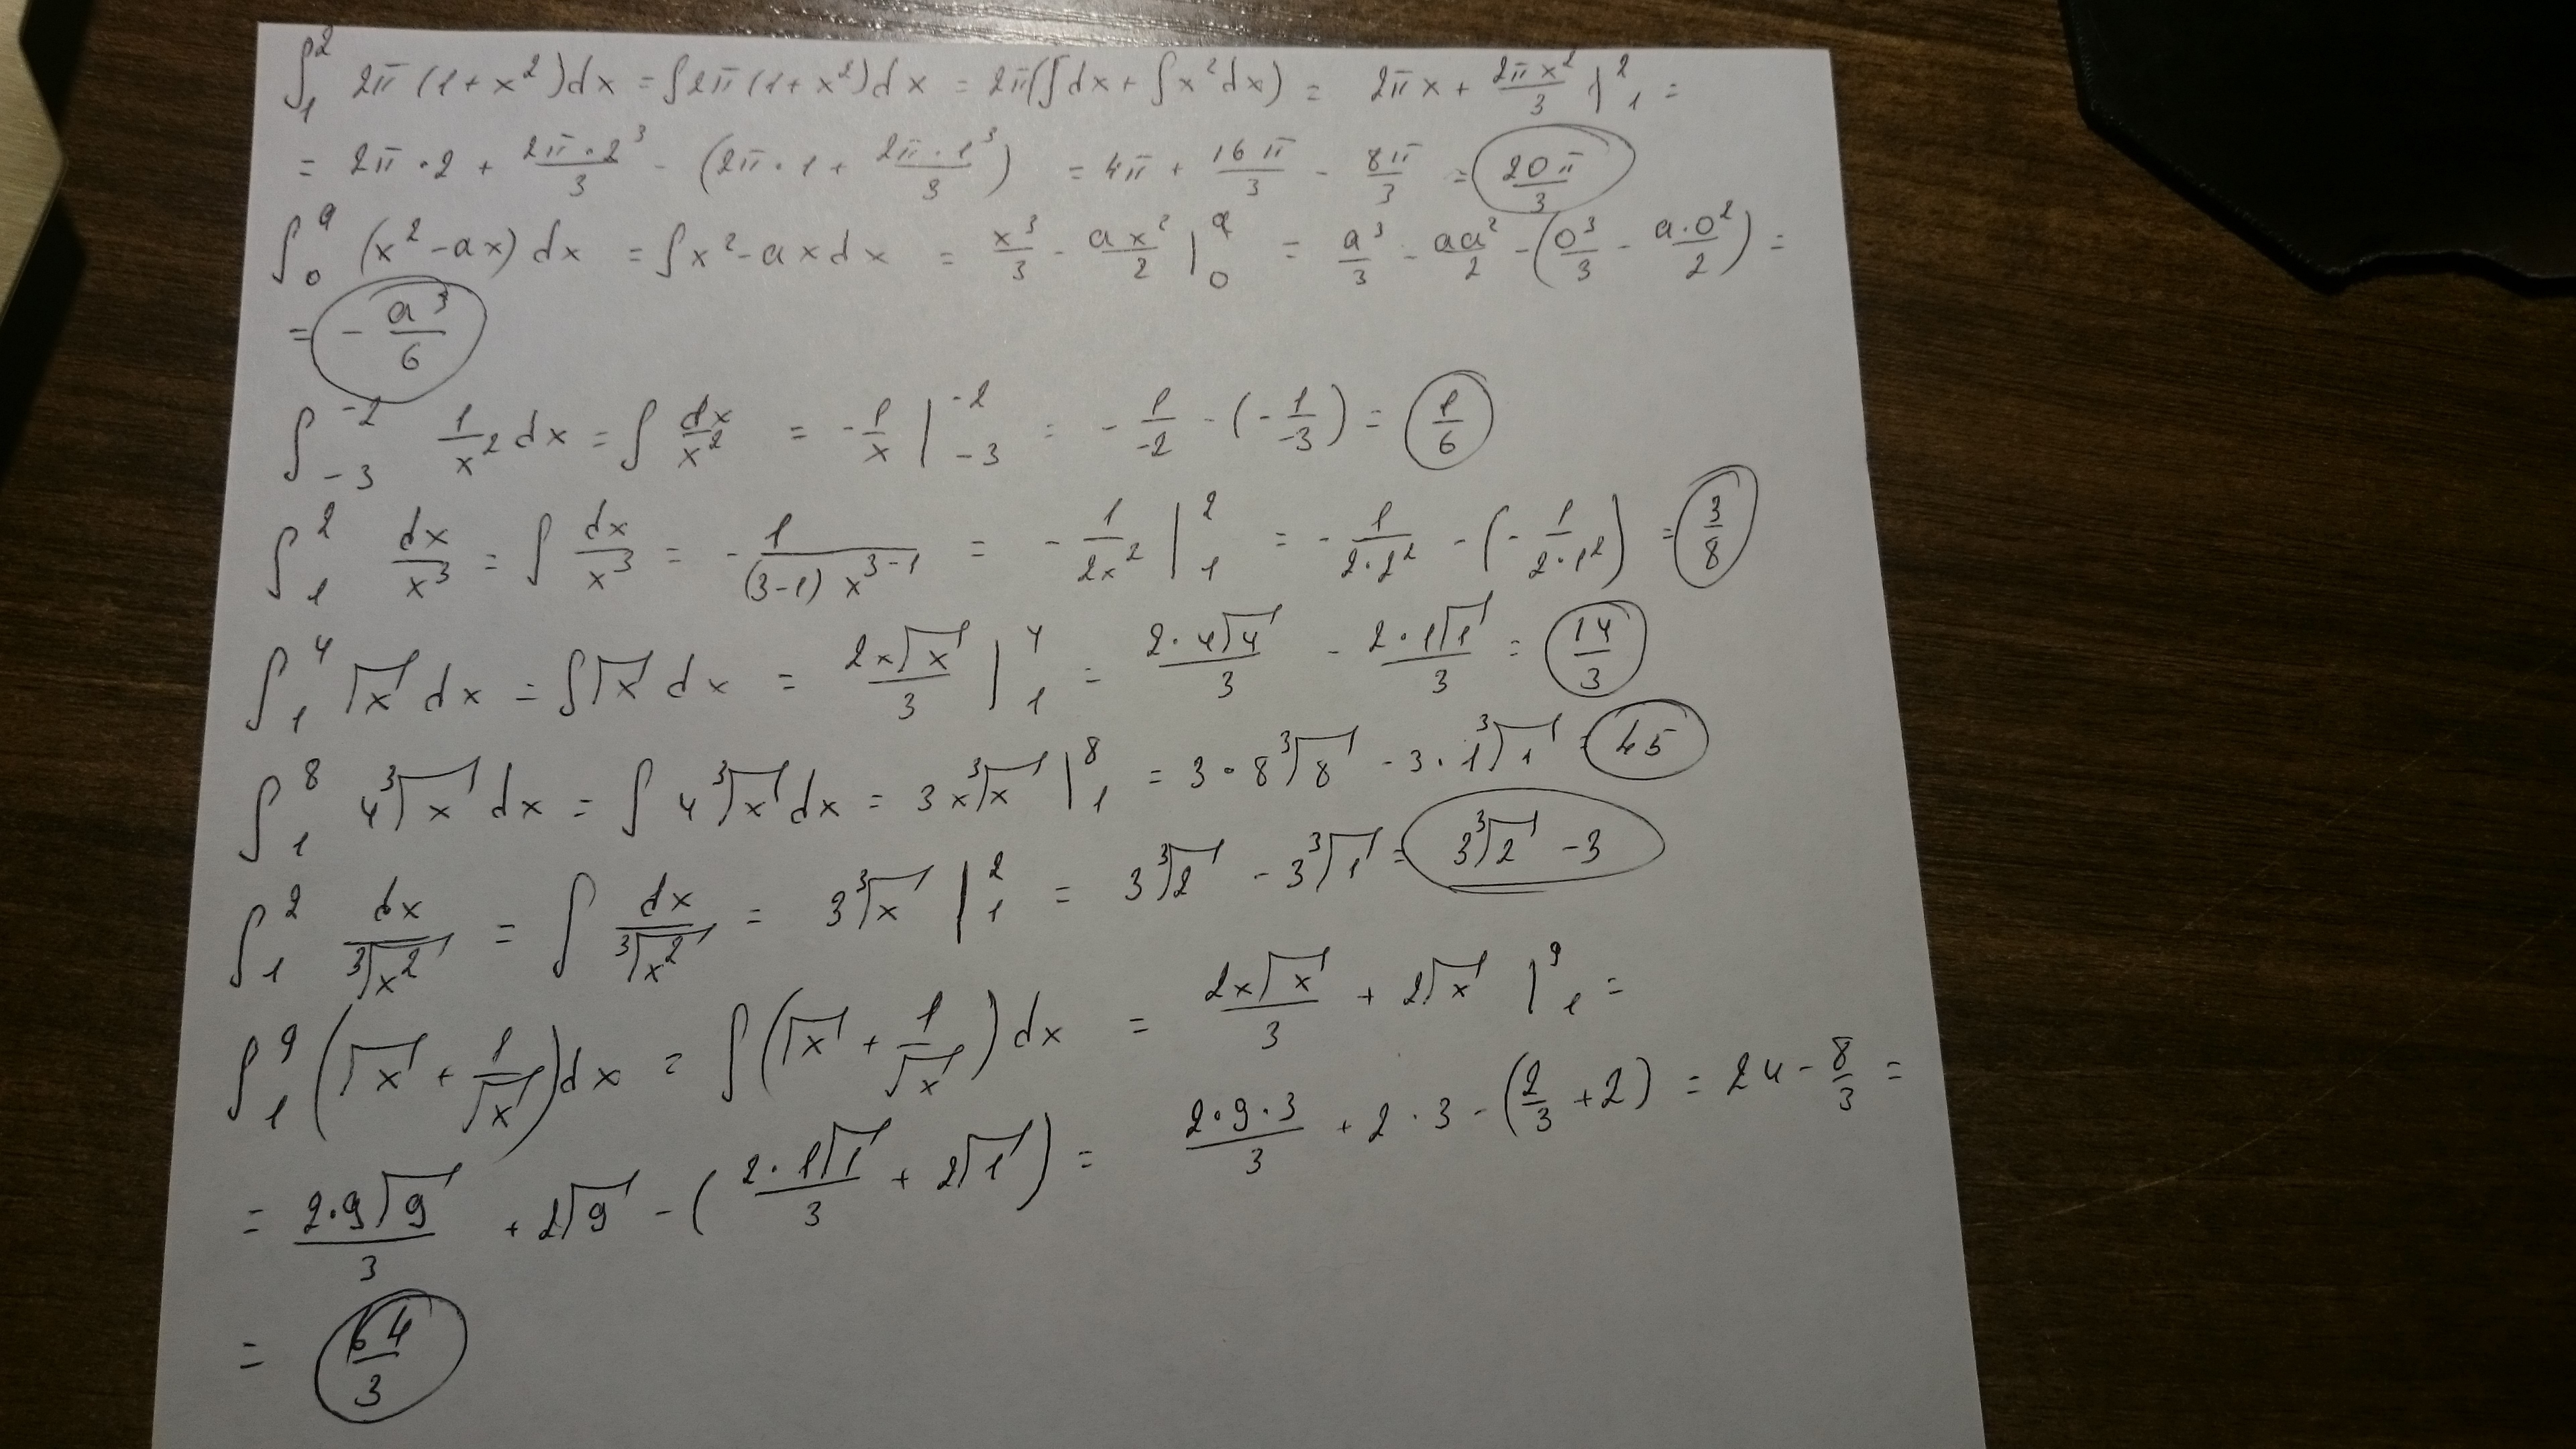 ∫₁² 2π(1+x²)dx = ∫2π(1+x²)dx = 2π(∫dx + ∫x²dx) = 2πx + 2πx²/3 |²₁ =
= 2π·2 + 2π·2³/3 - (2π·1 + 2π·1³/3) = 4π + 16π/3 - 8π/3 = 20π/3
∫₀ᵃ (x²-ax)dx = ∫x²-axdx = x³/3 - ax²/2 |ᵃ₀ = a³/3 - aa²/2 - (0³/3 - a·0²/2) =
= -a³/6
∫₋₃⁻² 1/x² dx = ∫ dx/x² = -1/x |⁻²₋₃ = -1/-2 - (-1/-3) = 1/6
∫₁² dx/x³ = ∫ dx/x³ = -1/((3-1)x³⁻¹) = -1/2x² |²₁ = -1/(2·2²) - (-1/(2·1²)) = 3/8
∫₁⁴ √x dx = ∫√x dx = 2x√x/3 |⁴₁ = 2·4√4/3 - 2·1√1/3 = 14/3
∫₁⁸ 4∛x dx = ∫ 4∛x dx = 3x∛x |⁸₁ = 3·8∛8 - 3·1∛1 = 45
∫₁² dx/∛x² = ∫ dx/∛x² = 3∛x |²₁ = 3∛2 - 3∛1 = 3∛2 - 3
∫₁⁹ (√x + 1/√x)dx = ∫(√x + 1/√x)dx = 2x√x/3 + 2√x |⁹₁ =
= 2·9√9/3 + 2√9 - (2·1√1/3 + 2√1) = 2·9·3/3 + 2·3 - (2/3 + 2) = 24 - 8/3 =
= 64/3